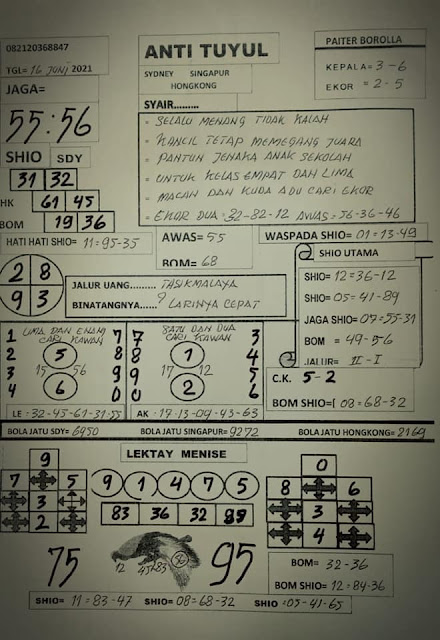 082120368847
TGL= 16 JUNI 2021
ANTI TUYUL
SYDNEY SINGAPUR
HONGKONG
PAITER BOROLLA
KEPALA= 3-6
EKOR = 2-5
JAGA=
55:56
SYAIR.........
- SELALU MENANG TIDAK KALAH
- KANCIL TETAP MEMEGANG JUARA
- PANTUN JENAKA ANAK SEKOLAH
- UNTUK KELAS EMPAT DAN LIMA
- MACAN DAN KUDA ADU CARI EKOR
- EKOR DUA = 32-82-12 AWAS = 56-36-46
SHIO SDY
31 32
HK 61 45
BOM 19 36
HATI HATI SHIO= 11=95-35
AWAS= 55
BOM= 68
WASPADA SHIO= 01=13-49
2 8
9 3
JALUR UANG......... TASIKMALAYA
BINATANGNYA...... ? LARINYA CEPAT
SHIO UTAMA
SHIO= 12=36-12
SHIO= 05=41-89
JAGA SHIO= 07=55-31
BOM = 49-56
JALUR= II-I
1 LIMA DAN ENAM 7
CARI KAWAN
2 5 8
3 15 56 9
4 6 0
7 SATU DAN DUA 3
CARI KAWAN
8 1 4
9 17 12 5
0 2 6
C.K. 5-2
BOM SHIO=[ 08=68-32
LE : 32-45-61-31-55
AK : 17-13-09-45-63
BOLA JATU SDY= 6950
BOLA JATU SINGAPUR= 9272
BOLA JATU HONGKONG= 2169
LEKTAY MENISE
9
7 5
3
2
9 1 4 7 5
83 36 32
0
8 6
3
4
75
12 45 83 56
95
BOM= 32-36
BOM SHIO= 12=84-36
SHIO= 11=83-47 SHIO= 08=68-32 SHIO =05-41-65